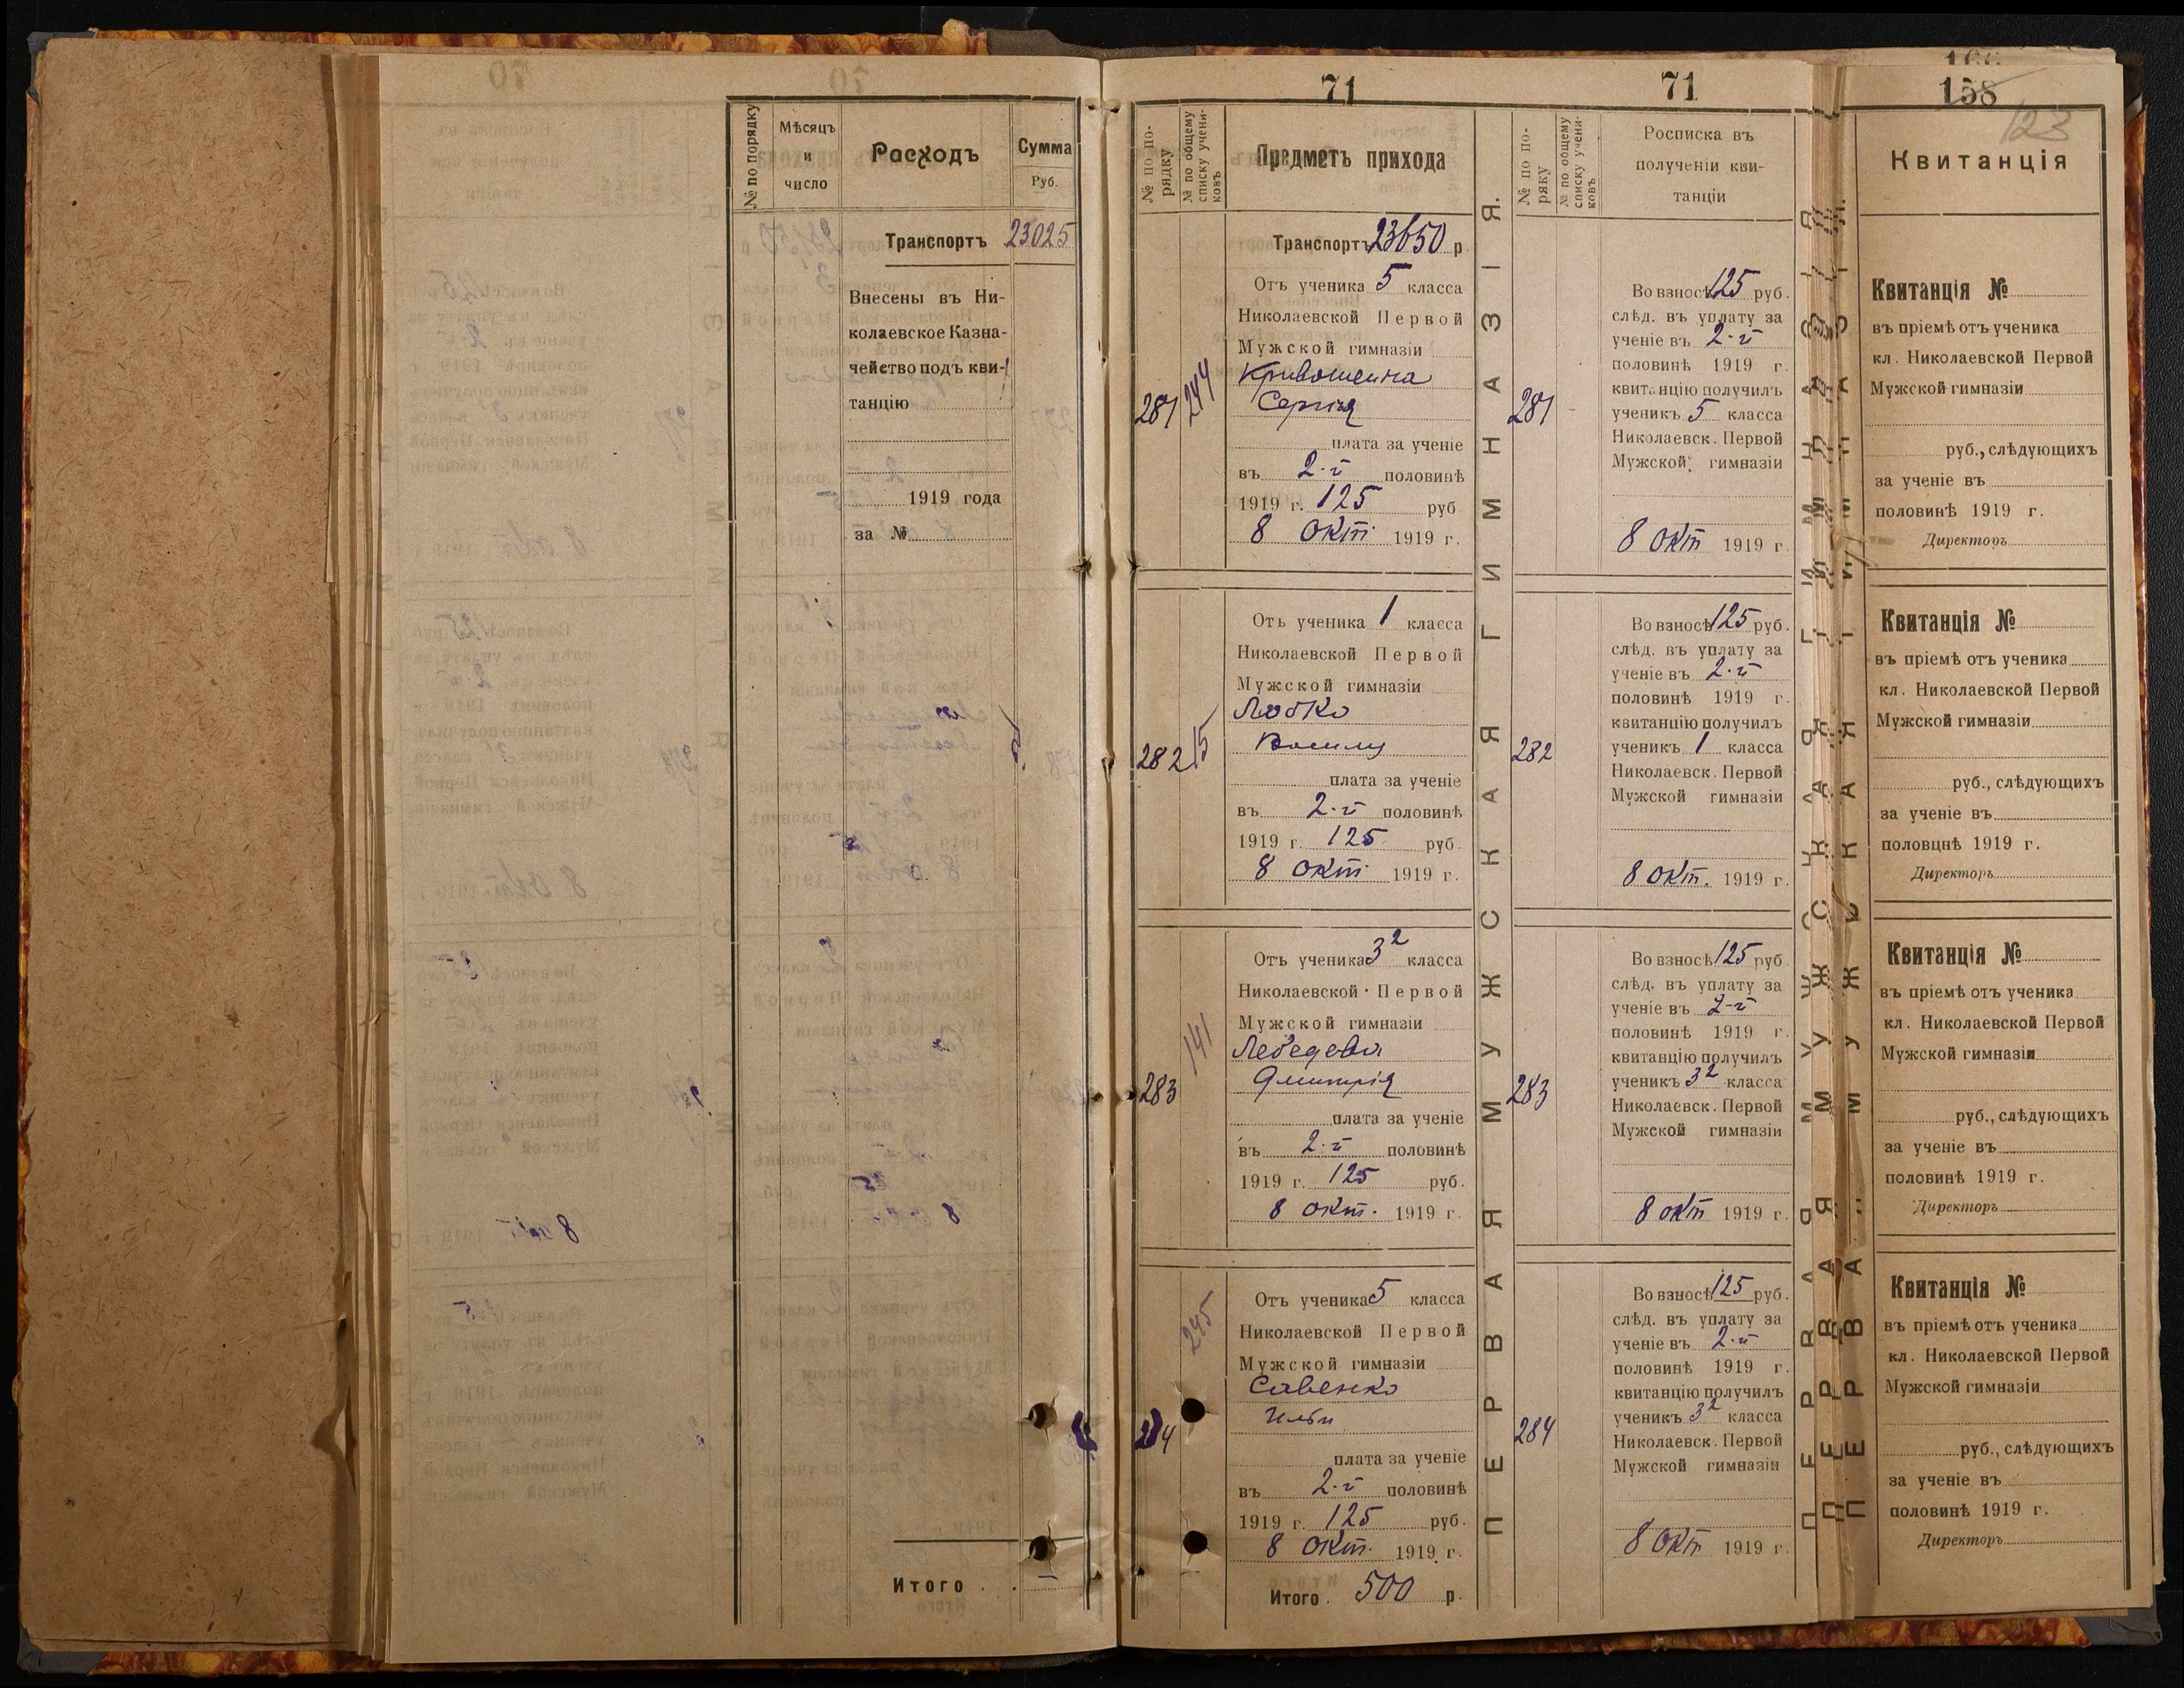 № по порядку
Мѣсяцъ
и
число
Расходъ
Сумма
Руб.
Транспортъ 23025
Внесены въ Ни-
колаевское Казна-
чейство подъ кви-
танцію
1919 года
за №
Итого . .
71
№ по по-
рядку
№ по общему
списку учени-
ковъ
Предметъ прихода
Транспортъ 23650 р
281
244
Отъ ученика 5 класса
Николаевской Первой
Мужской гимназіи
Кривошеина
Сергія
плата за ученіе
въ 2-й половинѣ
1919 г. 125 руб
8 окт. 1919 г.
282
15
Отъ ученика 1 класса
Николаевской Первой
Мужской гимназіи
Лобко
плата за ученіе
въ 2-й половинѣ
1919 г. 125 руб.
8 окт. 1919 г.
283
141
Отъ ученика 3² класса
Николаевской Первой
Мужской гимназіи
Лебедева
Дмитрія
плата за ученіе
въ 2-й половинѣ
1919 г. 125 руб.
8 окт. 1919 г.
284
245
Отъ ученика 5 класса
Николаевской Первой
Мужской гимназіи
Савенко
Ильи
плата за ученіе
въ 2-й половинѣ
1919 г. 125 руб.
8 окт. 1919 г.
Итого . 500 р.
ПЕРВАЯ МУЖСКАЯ ГИМНАЗІЯ.
71
№ по по-
ряку
№ по общему
списку учени-
ковъ
Росписка въ
полученіи кви-
танціи
281
Во взносѣ 125 руб.
слѣд. въ уплату за
ученіе въ 2-й
половинѣ 1919 г.
квитанцію получилъ
ученикъ 5 класса
Николаевск. Первой
Мужской гимназіи
8 окт 1919 г.
282
Во взносѣ 125 руб.
слѣд. въ уплату за
ученіе въ 2-й
половинѣ 1919 г.
квитанцію получилъ
ученикъ 1 класса
Николаевск. Первой
Мужской гимназіи
8 окт. 1919 г.
283
Во взносѣ 125 руб
слѣд. въ уплату за
ученіе въ 2-й
половинѣ 1919 г.
квитанцію получилъ
ученикъ 3² класса
Николаевск. Первой
Мужской гимназіи
8 окт 1919 г.
284
Во взносѣ 125 руб.
слѣд. въ уплату за
ученіе въ 2-й
половинѣ 1919 г.
квитанцію получилъ
ученикъ 3² класса
Николаевск. Первой
Мужской гимназіи
8 окт 1919 г.
158
123
Квитанція
Квитанція №
въ пріемѣ отъ ученика
кл. Николаевской Первой
Мужской гимназіи
руб., слѣдующихъ
за ученіе въ
половинѣ 1919 г.
Директоръ
Квитанція №
въ пріемѣ отъ ученика
кл. Николаевской Первой
Мужской гимназіи
руб., слѣдующихъ
за ученіе въ
половцнѣ 1919 г.
Директоръ
Квитанція №
въ пріемѣ отъ ученика
кл. Николаевской Первой
Мужской гимназіи
руб., слѣдующихъ
за ученіе въ
половинѣ 1919 г.
Директоръ
Квитанція №
въ пріемѣ отъ ученика
кл. Николаевской Первой
Мужской гимназіи
руб., слѣдующихъ
за ученіе въ
половинѣ 1919 г.
Директоръ